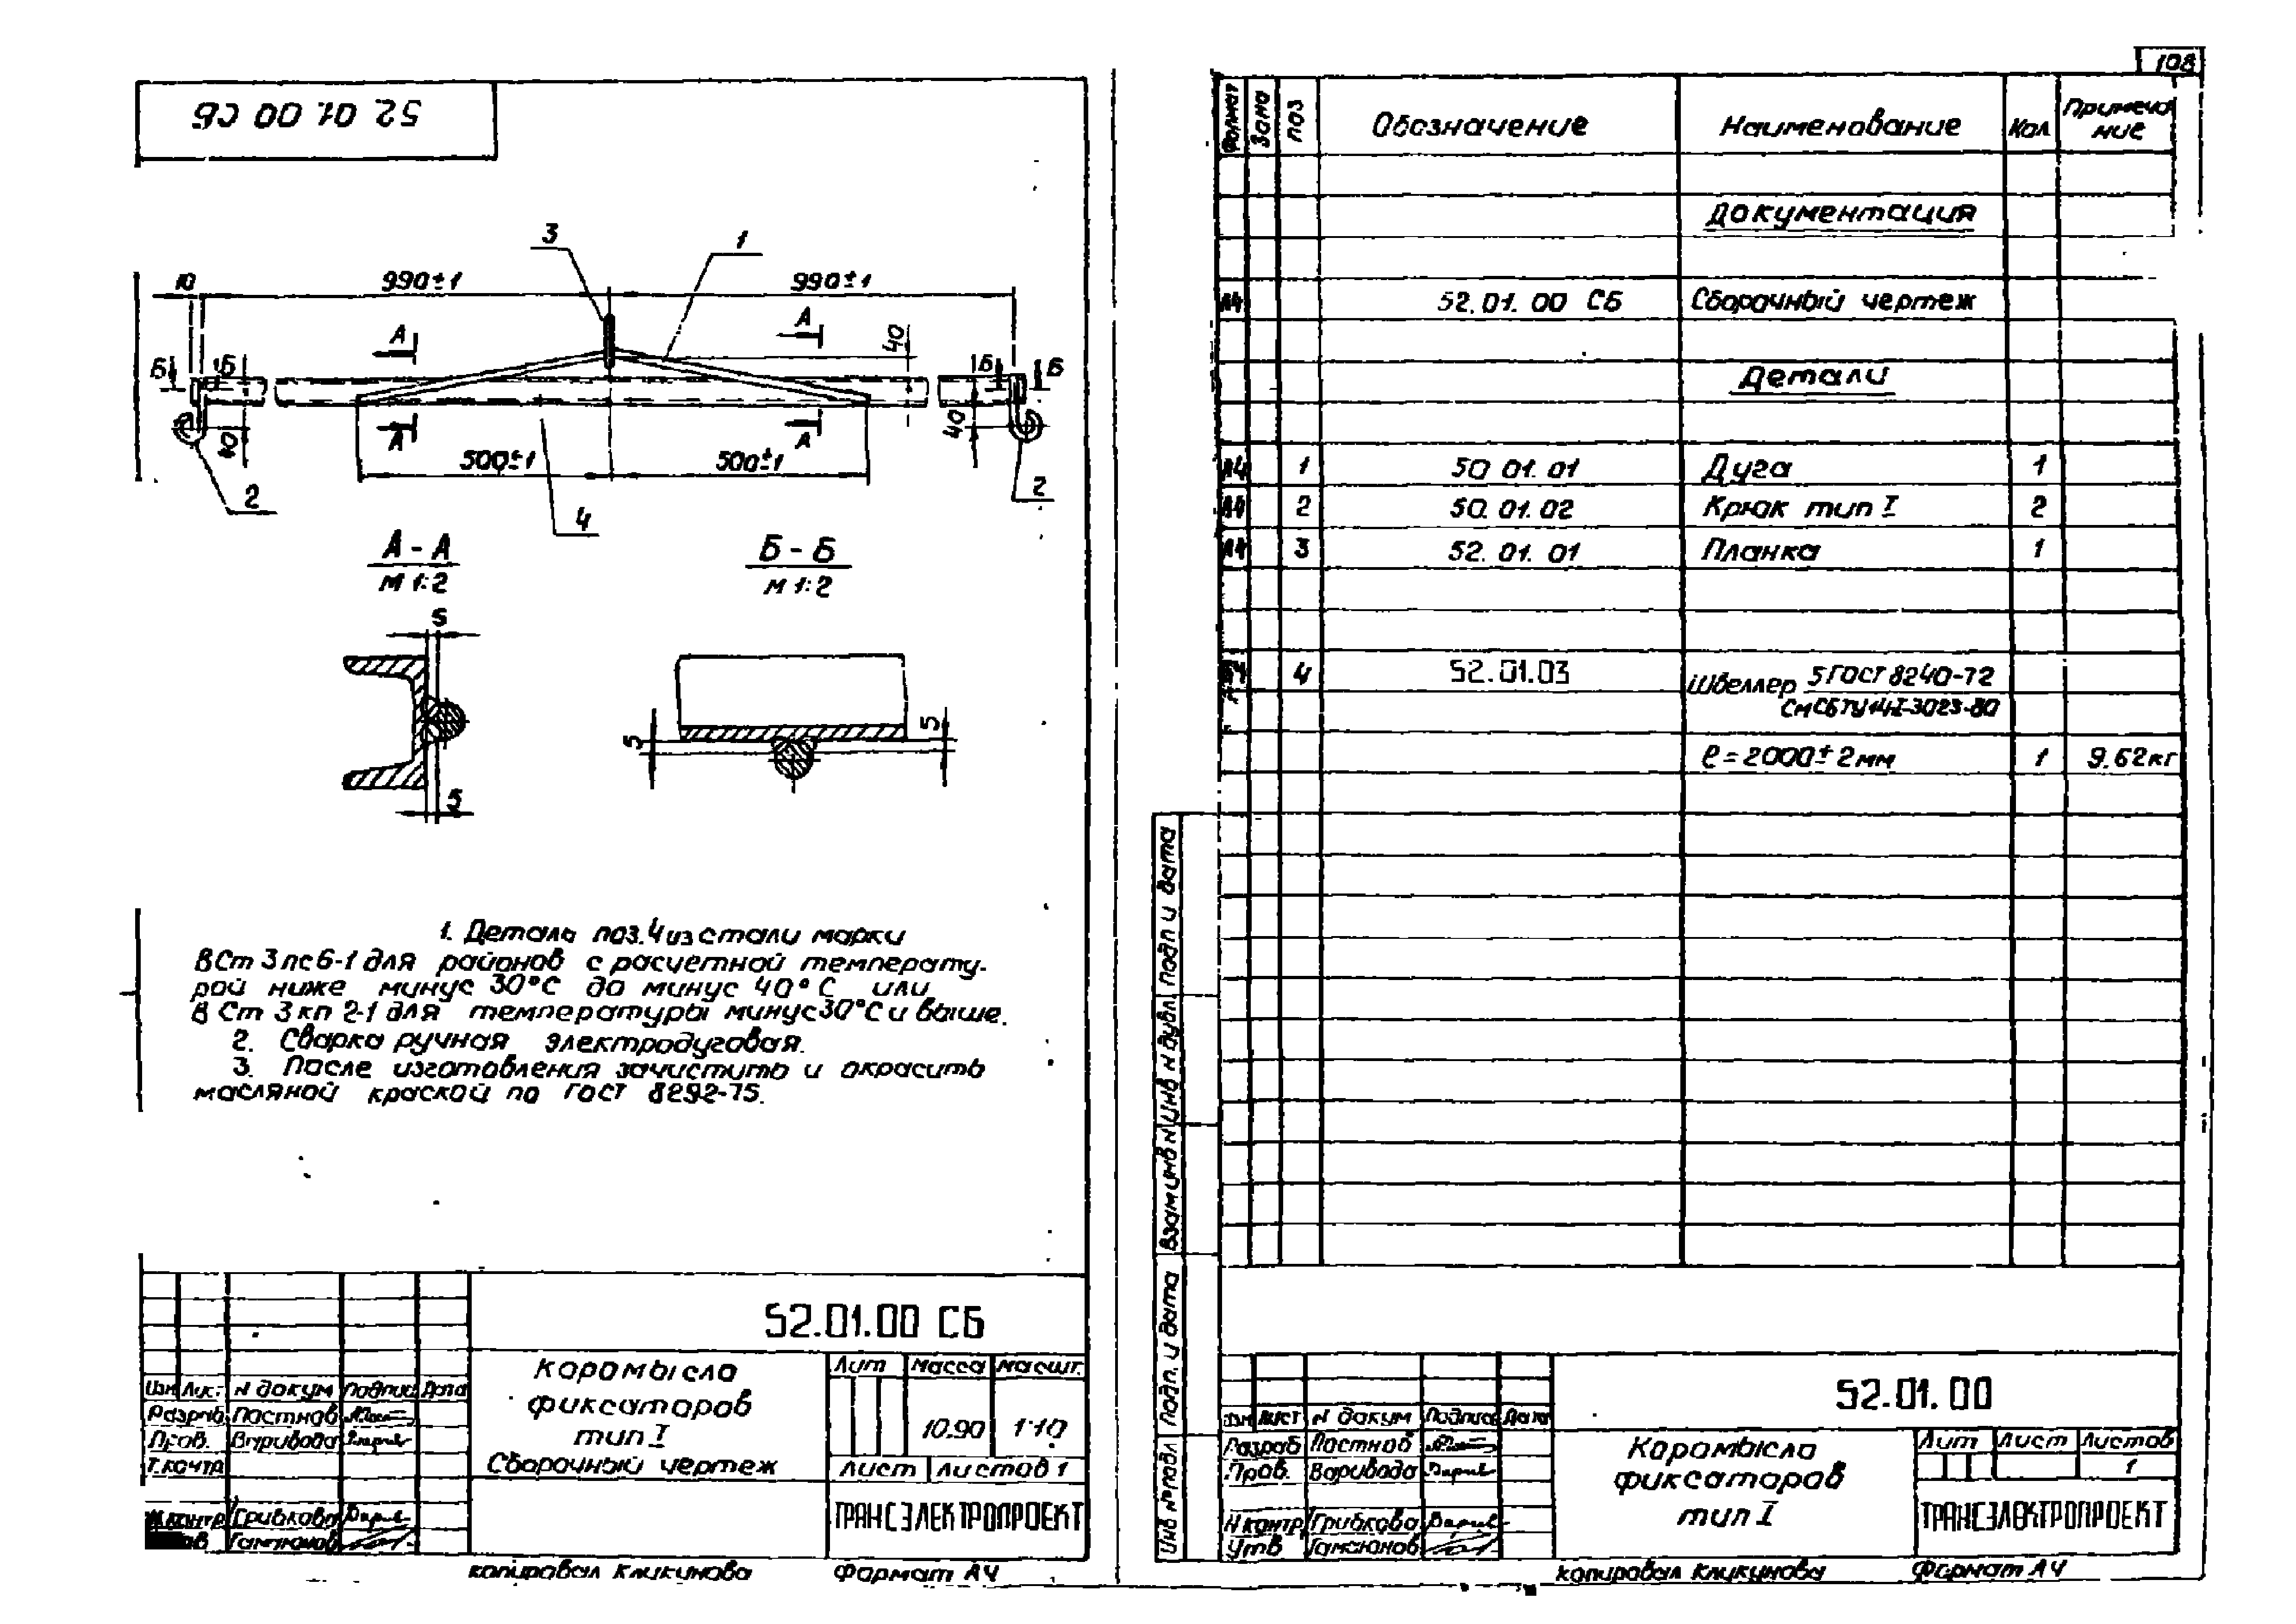 52 01. 00 СБ
3
1
10
990±1
990±1
А
А
40
Б
Б
Б
Б
40
А
А
40
500±1
500±1
2
4
2
А - А
М 1:2
Б - Б
М 1:2
5
5
5
5
1. Деталь поз. 4 из стали марки
ВСт 3 пс 6-1 для районов с расчетной температу-
рой ниже минус 30°С до минус 40°С или
В Ст 3 кп 2-1 для температуры минус 30°С и выше.
2. Сварка ручная электродуговая.
3. После изготовления зачистить и окрасить
масляной краской по ГОСТ 8292-75.
52.01.00 СБ
Коромысла
фиксаторов
тип I
Сборочный чертеж
Лит Масса Масшт.
10.90 1:10
Лист Листов 1
ТРАНСЭЛЕКТРОПРОЕКТ
Изм Лис. N докум Подпис Дата
Разраб Постнов
Пров. Варивода
Т.контр
Н.контр Грибкова
Гамзюнов
копировал Кликунова Формат А4
108
Формат Зона Поз Обозначение Наименование Кол Примеча
ние
Документация
А4 52.01.00 СБ Сборочный чертеж
Детали
А4 1 50 01. 01 Дуга 1
А4 2 50. 01. 02 Крюк тип I 2
А4 3 52. 01. 01 Планка 1
4 52.01.03 Швеллер 5 ГОСТ 8240-72
ℓ = 2000 ± 2 мм 1 9.62кг
Подп и дата
Инв N дубл.
Взам инв N
Подп. и дата
Инв № подл
52.01.00
Изм Лист N докум Подпис Дата
Разраб Постнов
Пров. Варивода
Н контр Грибкова
Утв Гамзюнов
Коромысла
фиксаторов
тип I
Лит Лист Листов
1
ТРАНСЭЛЕКТРОПРОЕКТ
копировал Кликунова Формат А4